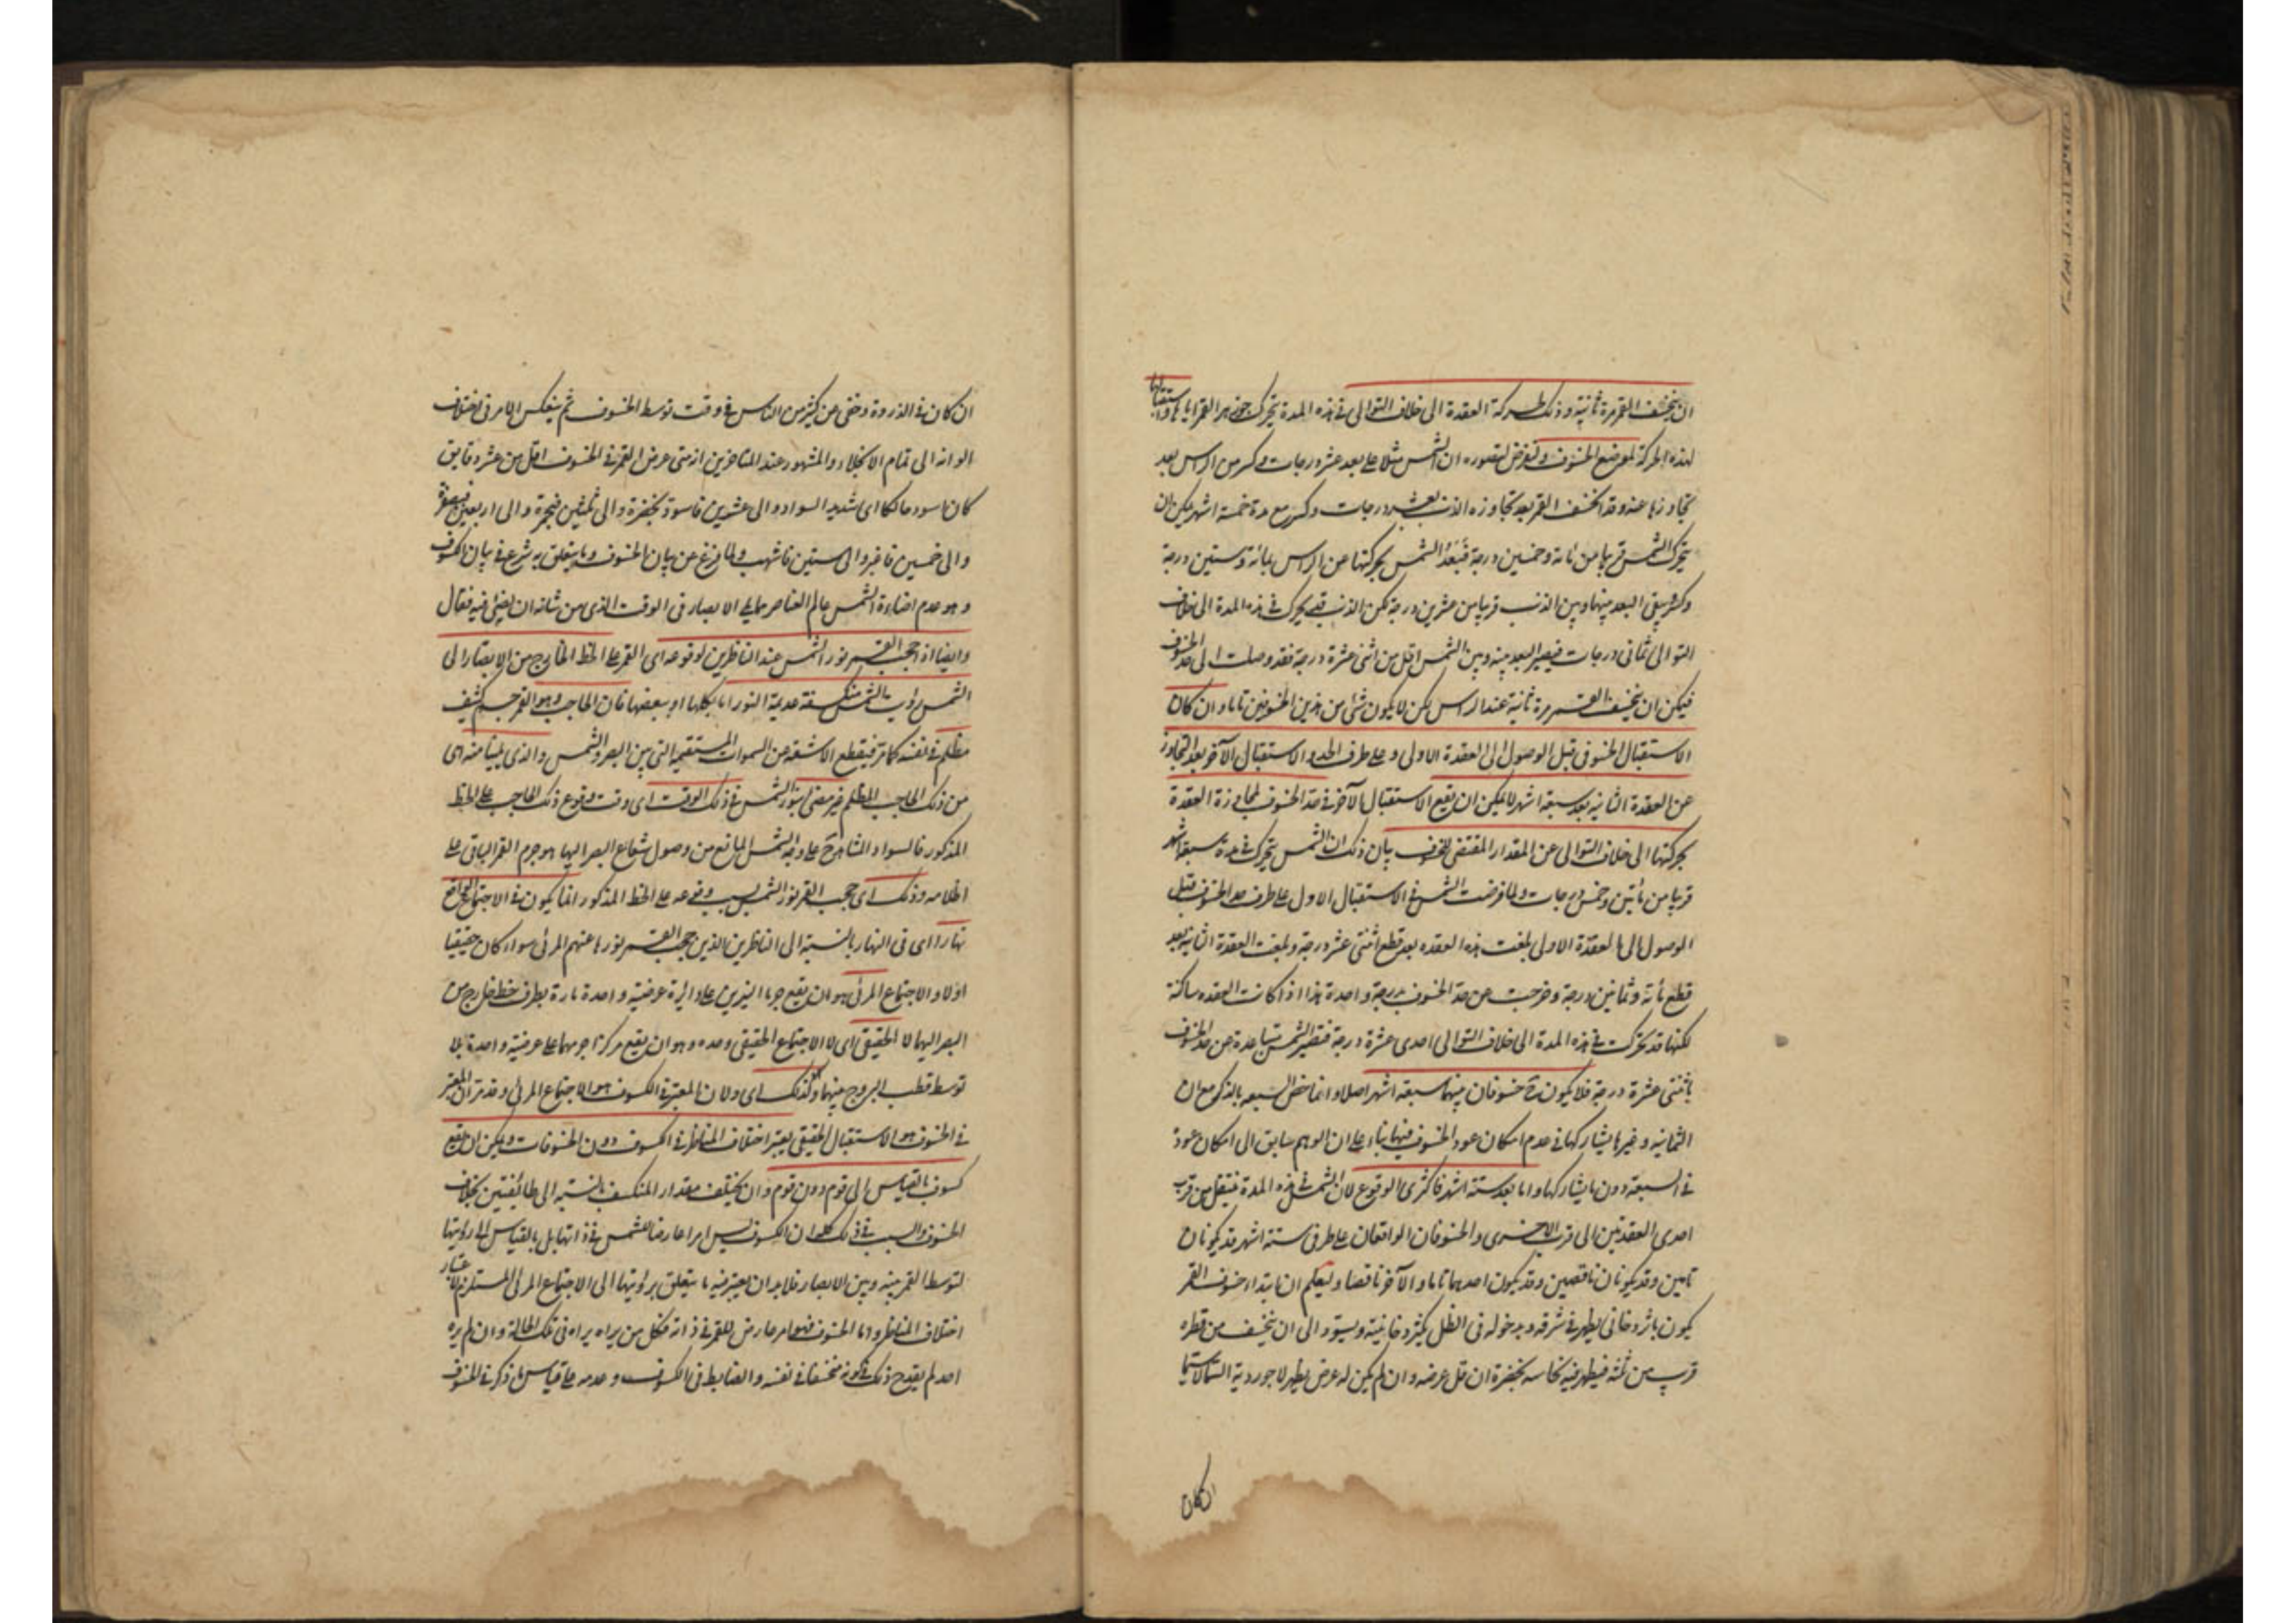 ان ينخسف القمر مرة ثانية وذلك لحركة العقدة الى خلاف التوالى فى هذه المدة بتحرك جوزهر القمر اياها واستقبالها
لهذه الحركة لموضع الخسوف ولنفرض لتصوره ان الشمس مثلا على بعد عشر درجات وكسر من الراس بعد
تجاوزها عنه وقد انخسف القمر بعد تجاوزه الذنب بعشر درجات وكسر مع مدة خمسة اشهر يمكن ان
يتحرك الشمس قريبا من مائة وخمسين درجة فبعد الشمس بحركتها عن الراس بمائة وستين درجة
وكسر بقى البعد بينها وبين الذنب قريبا من عشرين درجة لكن الذنب قد يحرك فى هذه المدة الى خلاف
التوالى ثمانى درجات فيصير البعد بينه وبين الشمس اقل من اثنى عشرة درجة فقد وصلت الى حد الخسوف
فيمكن ان ينخسف القمر مرة ثانية عند الراس لكن لا يكون شئ من هذين الخسوفين تاما وان كان
الاستقبال الخسوفى قبل الوصول الى العقدة الاولى وعلى طرف الحد والاستقبال الآخر بعد التجاوز
عن العقدة الثانية بعد سبعة اشهر لا يمكن ان يقع الاستقبال الآخر فى حد الخسوف لمجاوزة العقدة
بحركتها الى خلاف التوالى عن المقدار المقتضى للخسوف بيان ذلك ان الشمس يتحرك فى مدة سبعة اشهر
قريبا من مأتين وخمس درجات ولما فرضت الشمس فى الاستقبال الاول على طرف حد الخسوف قبل
الوصول الى العقدة الاولى بلغت هذه العقده بعد قطع اثنتى عشر درجة وبلغت العقدة الثانية بعد
قطع مأئة وثمانين درجة وخرجت عن حد الخسوف بدرجة واحدة هذا اذا كانت العقده ساكنة
لكنها قد تحركت فى هذه المدة الى خلاف التوالى احدى عشرة درجة فتصير الشمس متباعدة عن حد الخسوف
باثنتى عشرة درجة فلا يكون خسوفان بينهما سبعة اشهر اصلا وانما خص السبعه بالذكر مع ان
الثمانية وغيرها يشاركها فى عدم امكان عود الخسوف فيها بناء على ان الوهم سابق الى امكان عودة
فى السبعة دون ما يشاركها واما بعد ستة اشهر فاكثرى الوقوع لان الشمس فى هذه المدة فينتقل من قرب
احدى العقدتين الى قرب الاخرى والخسوفان الواقعان على طرفى ستة اشهر قد يكونان
تامين وقد يكونان ناقصين وقد يكون احدهما تاما والآخر ناقصا وليعلم ان ابتداء خسوف القمر
يكون باثر دخانى يظهر فى شرقه وبدخوله فى الظل يكثر دخانيته ويسود الى ان ينخسف من قطره
قريب من ثلثه فيظهر فيه نحاسه بخضرة ان قل عرضه وان لم يكن له عرض يظهر لاجوردية
ان كان
ان كان فى الذروة وخفى عن كثير من الناس فى وقت توسط الخسوف ثم ينعكس الامر فى اختلاف
الوانه الى تمام الانجلاء والمشهور عند المتاخرين انه متى عرض القمر فى الخسوف اقل من عشر دقايق
كان اسود حالكا اى شديد السواد والى عشرين فاسود بخضرة والى ثلثين فبحمرة والى اربعين فبصفرة
والى خمسين فاغبر والى ستين فاشهب ولما فرغ عن بيان الخسوف وما يتعلق به شرع فى بيان الكسوف
وهو عدم اضاءة الشمس عالم العناصر مما يلى الابصار فى الوقت الذى من شانه ان يضئ فيه فقال
وايضا اذا حجب القمر نور الشمس عند الناظرين لوقوعه اى القمر على الخط الخارج من الابصار الى
الشمس رؤيت الشمس منكسفة عديمة النور اما بكلها او ببعضها فان الحاجب وهو القمر جرم كثيف
مظلم فى نفسه كما مر فيقطع الاشعة عن السموات المستقيمة التى بين البصر والشمس والذى يلينا منه اى
من ذلك الحاجب المظلم غير مضئ بنور الشمس فى ذلك الوقت اى وقت وقوع ذلك الحاجب على الخط
المذكور فالسواد الشاهد على وجه الشمس المانع من وصول شعاع البصر اليها هو جرم القمر الباقى على
اظلامه وذلك اى حجب القمر نور الشمس بسبب وقوعه على الخط المذكور انما يكون فى الاجتماع الواقع
نهارا اى فى النهار بالنسبة الى الناظرين الذين حجب القمر نورها عنهم المرئى سواء كان حقيقيا
اولا والاجتماع المرئى هو ان يقع جرما النيرين على دائرة عرضية واحدة مارة بطرف خط خارج من
البصر اليهما لا الحقيقى اى لا الاجتماع الحقيقى وحده وهو ان يقع مركزا جرمهما على عرضية واحدة بلا
توسط قطب البروج بينهما ولذلك اى ولان المعتبر فى الكسوف هو الاجتماع المرئى وقد مر ان المعتبر
فى الخسوف هو الاستقبال الحقيقى يعتبر اختلاف المناظر فى الكسوف دون الخسوفات ويمكن ان يقع
كسوف بالقياس الى قوم دون قوم وان يختلف مقدار المنكسف بالنسبة الى طائفتين بخلاف
الخسوف والسبب فى ذلك ان الكسوف ليس امرا عارضا للشمس فى ذاتها بل بالقياس الى رؤيتها
لتوسط القمر بينه وبين الابصار فلابد ان يعتبر فيه ما يتعلق برؤيتها الى الاجتماع المرئى المستلزم لاعتبار
اختلاف المناظر واما الخسوف فهو امر عارض للقمر فى ذاته فكل من يراه يراه فى تلك الحالة وان لم يره
احد لم يقدح ذلك فى كونه منخسفا فى نفسه والضابط فى الكسوف وعدمه على قياس ما ذكر فى الخسوف